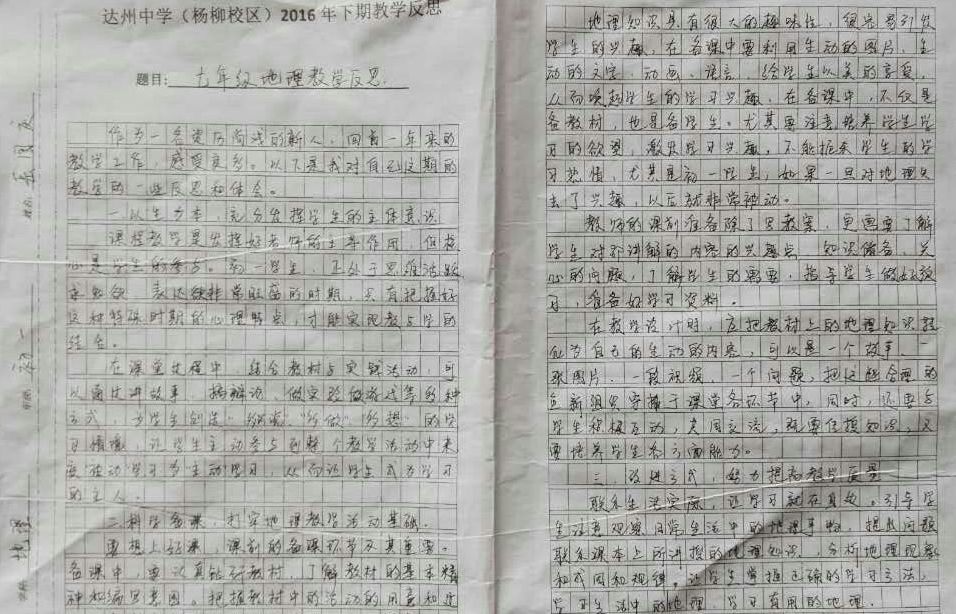 达州中学（杨柳校区）2016年下期教学反思
题目：七年级地理教学反思
作为一名资历尚浅的新人，回首一年来的
教学工作，感受良多。以下是我对自己这期的
教学的一些反思和体会。
一.以生为本，充分发挥学生的主体意识
课程教学是发挥好老师的主导作用，但核
心是学生的参与。初一学生，正处于思维活跃
求知欲、表达欲非常旺盛的时期，只有把握好
这种特殊时期的心理特点，才能实现教与学的
结合。
在课堂过程中，结合教材与实践活动，可
以通过讲故事、搞辩论、做实验做游戏等多种
方式，为学生创造"多说""多做""多想"的学
习情境，让学生主动参与到整个教学活动中来
变被动学习为主动学习，从而让学生成为学习
的主人。
二.科学备课，打实地理教学活动基础。
要想上好课，课前的备课环节及其重要。
备课中，要认真钻研教材，了解教材的基本精
神和编写意图。把握教材中的活动的用意和进
地理知识具有很大的趣味性，很容易引发
学生的兴趣，在备课中要利用生动的图片，生
动的文字，动画，语言，给学生以美的享受，
从而唤起学生的学习兴趣，在备课中，不仅是
备教材，也是备学生。尤其要注意培养学生学
习的欲望，激发学习兴趣，不能挫伤学生的学
习热情，尤其是初一学生，如果一旦对地理失
去了兴趣，以后就非常被动。
教师的课前准备除了写教案，更重要了解
学生对所讲解的内容的兴趣点、知识储备、关
心的问题，了解学生的需要，指导学生做好预
习，准备好学习资料。
在教学设计时，应把教材上的地理知识转
化为自己的生动的内容，可以是一个故事、一
张图片、一段视频、一个问题，把这些合理的
重新组织穿插于课堂各环节中，同时，还要与
学生积极互动，共同交流，既要传授知识，又
要培养学生各方面能力。
三.改进方式，努力提高教学质量
联系生活实际，让学习就在身边。引导学
生注意观察日常生活中的地理事物，提出问题
联系课本上所讲授的地理知识，分析地理现象
和成因和规律。让学生掌握正确的学习方法，
学习生活中的地理，学习有用的地理。
初一
地理